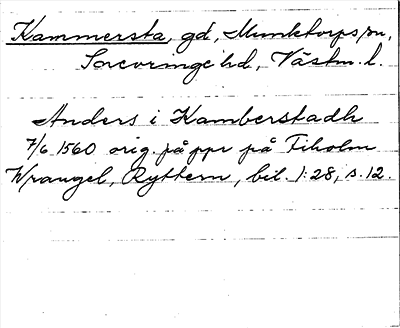 Kammersta, gd, Munktorps sn,
Snevringe hd, Västm. l.
Anders i Kamberstadh
7/6 1560 orig. på ppr på Tiholm
Wrangel, Ryttern, bil. 1:28, s. 12.